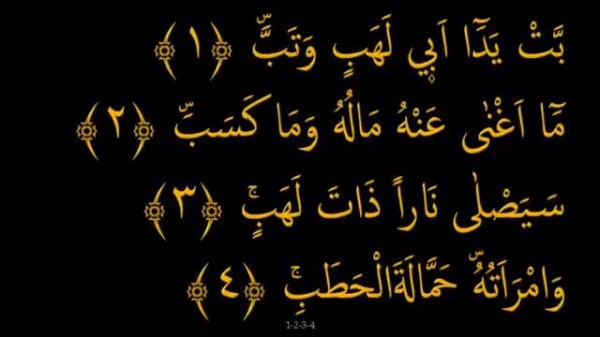 بَّتْ يَدَٓا اَبٖي لَهَبٍ وَتَبَّۜ ﴿١﴾
مَٓا اَغْنٰى عَنْهُ مَالُهُ وَمَا كَسَبَۜ ﴿٢﴾
سَيَصْلٰى نَاراً ذَاتَ لَهَبٍۚ ﴿٣﴾
وَامْرَاَتُهُۜ حَمَّالَةَ الْحَطَبِۚ ﴿٤﴾
1-2-3-4